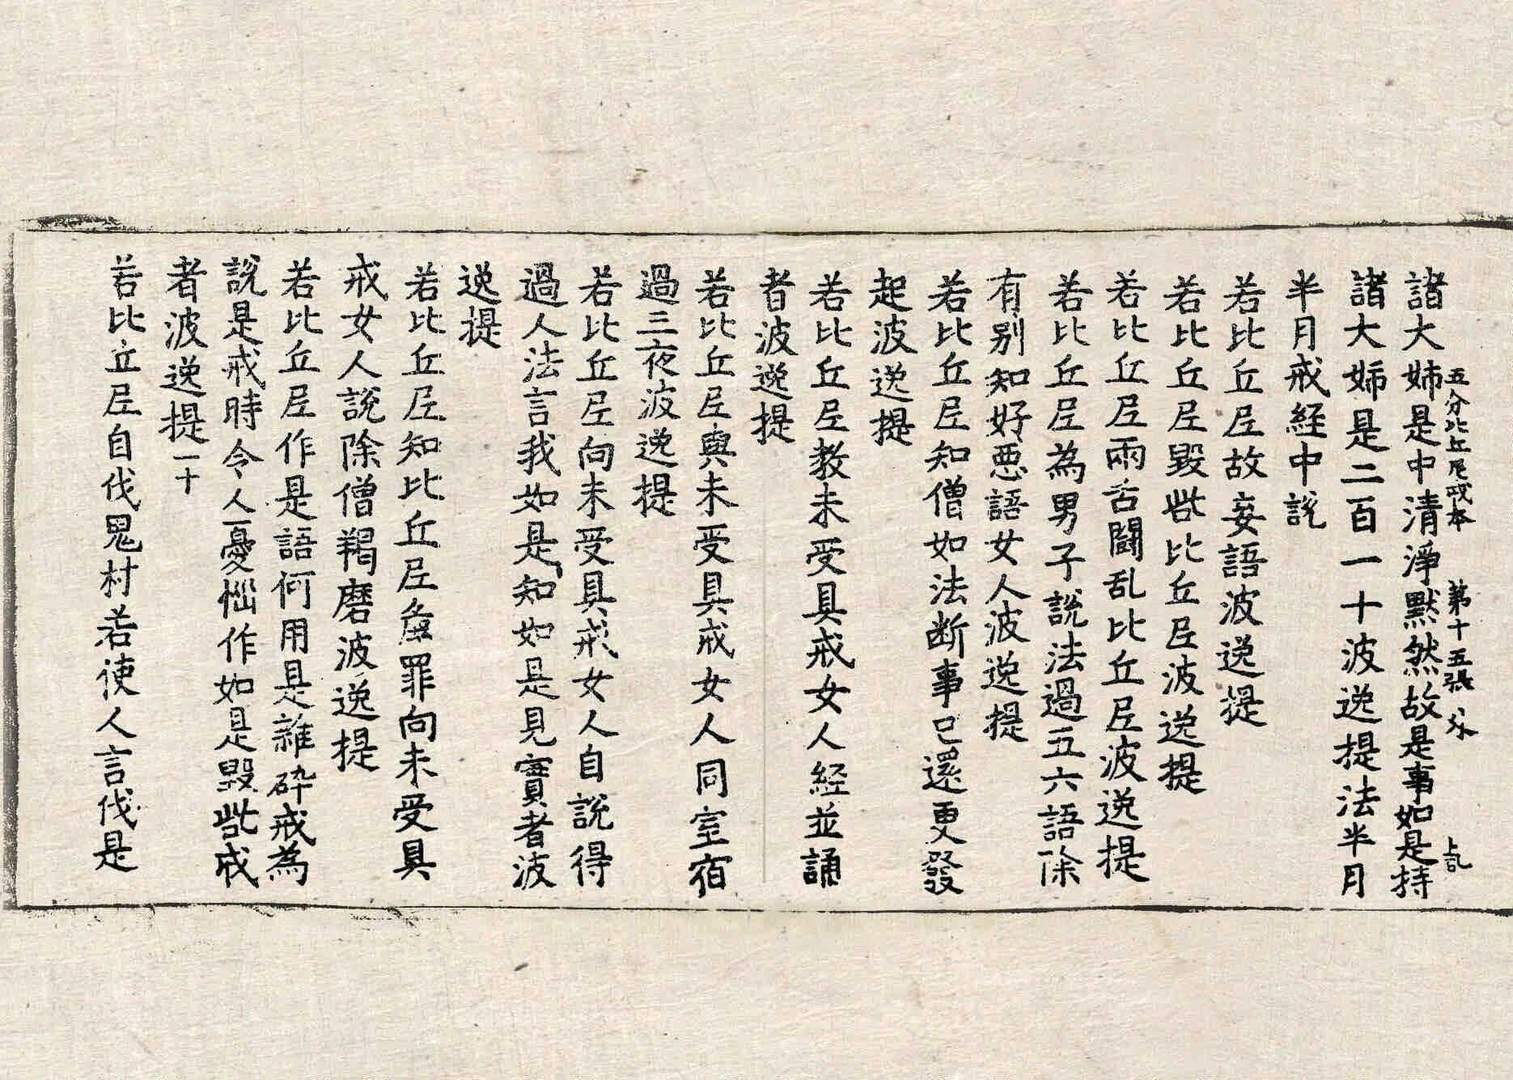 五分比丘尼戒本　第十五張
諸大姉是中清淨默然故是事如是持
諸大姉是二百一十波逸提法半月
半月戒経中說
若比丘尼故妄語波逸提
若比丘尼毀呰比丘尼波逸提
若比丘尼兩舌鬪乱比丘尼波逸提
若比丘尼為男子說法過五六語除
有別知好惡語女人波逸提
若比丘尼知僧如法断事已還更發
起波逸提
若比丘尼教未受具戒女人経並誦
者波逸提
若比丘尼與未受具戒女人同室宿
過三夜波逸提
若比丘尼向未受具戒女人自說得
過人法言我如是知如是見實者波
逸提
若比丘尼知比丘尼麁罪向未受具
戒女人說除僧羯磨波逸提
若比丘尼作是語何用是雜碎戒為
說是戒時令人憂惱作如是毀呰戒
者波逸提一十
若比丘尼自伐鬼村若使人言伐是